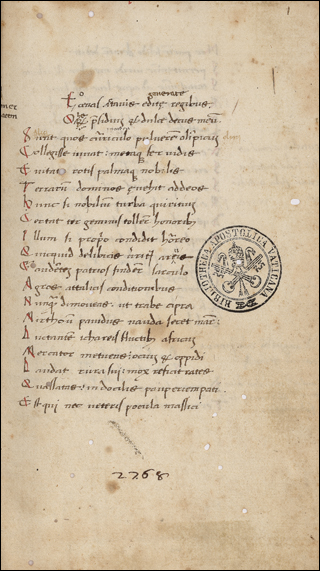 1
generate
Ecoenas Atavis edite regibus
O & presidium & dulce decus meum
Sunt quos curriculo puluerem olimpicum
Collegisse iuuat: metaque feruidis
Euitata rotis palmaque nobilis
Terrarum dominos euehit ad deos
Hunc si mobilium turba quiritium
Certat ter geminis tollere honoribus
Illum si proprio condidit horreo
Quicquid de libicis areis
Gaudentem patrios findere sarculo
Agros attalicis conditionibus
Nunquam dimoueas ut trabe cipria
Mirthoum pauidus nauta secet mare:
Luctantem ichareis fluctibus africum
Mercator metuens: ocium & oppidi
Laudat rura sui: mox reficit rates
Quassatas: indocilis pauperiem pati.
Est qui nec ueteris pocula massici
BIBLIOTHECA APOSTOLICA VATICANA
2768